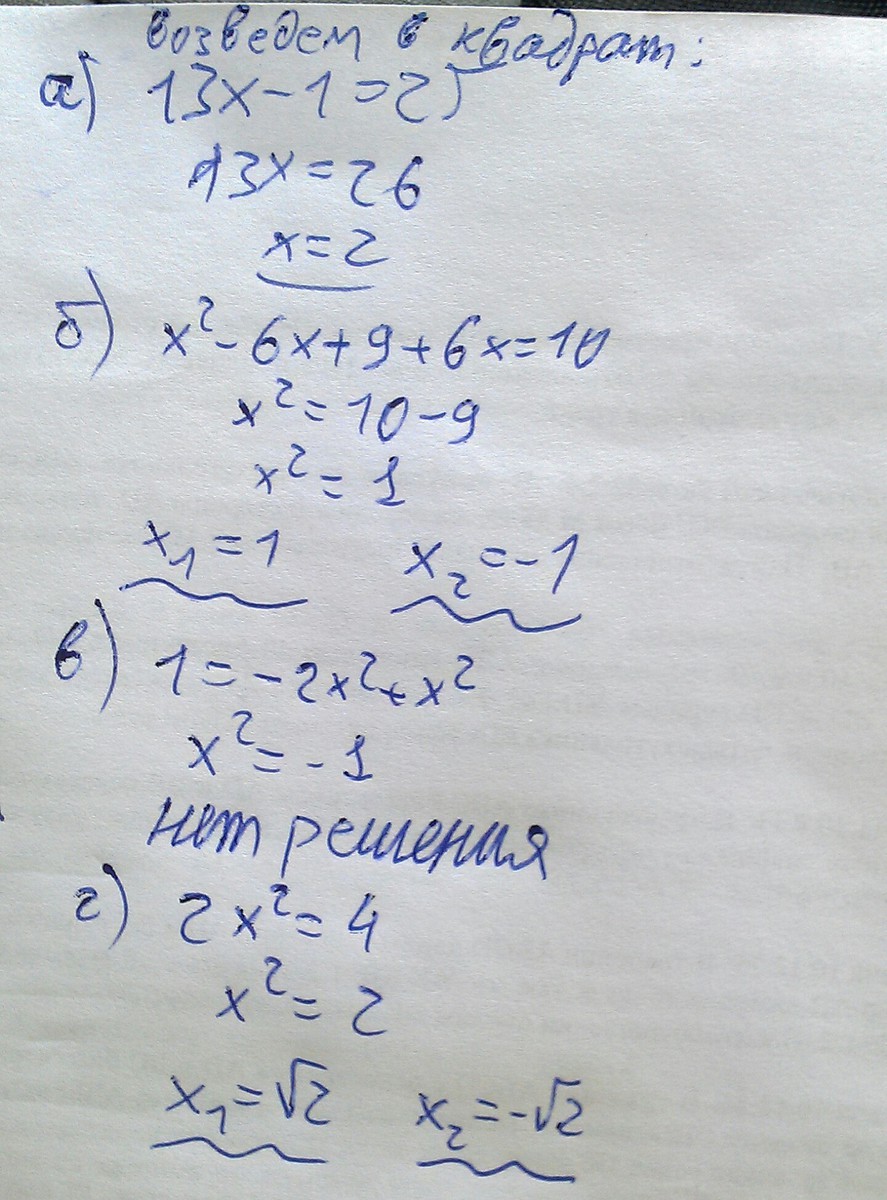 возведем в квадрат:
а) 13x-1=25
13x=26
x=2
б) x²-6x+9+6x=10
x²=10-9
x²=1
x₁=1 x₂=-1
в) 1=-2x²+x²
x²=-1
нет решения
г) 2x²=4
x²=2
x₁=√2 x₂=-√2